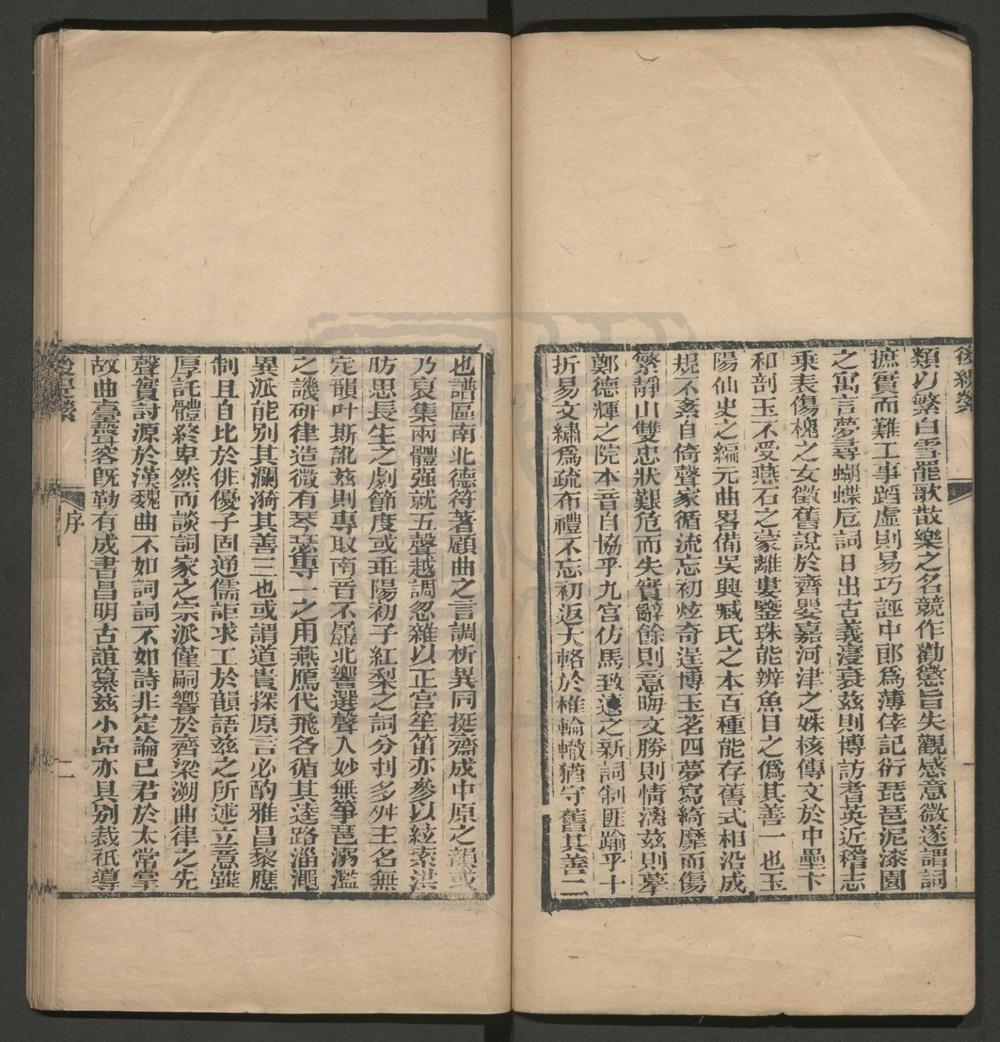 後緹縈
類以繁白雪龍歌散樂之名競作勸懲旨失觀感意微遂謂詞
摭實而難工事蹈虛則易巧誣中郎爲薄倖記衍琵琶泥漆園
之寓言夢尋蝴蝶卮詞日出古義寖衰茲則博訪耆英近稽志
乘表傷槐之女徵舊說於齊嬰嘉河津之姝核傳文於中壘卞
和剖玉不受燕石之蒙離婁鑒珠能辨魚目之僞其善一也玉
陽仙史之編元曲畧備吳興臧氏之本百種能存舊式相沿成
規不紊自倚聲家循流忘初炫奇逞博玉茗四夢寫綺靡而傷
繁靜山雙忠狀艱危而失實辭餘則意晦文勝則情漓茲則摹
鄭德輝之院本音自協乎九宮仿馬致遠之新詞制匪踰乎十
折易文繡爲疏布禮不忘初返大輅於椎輪轍猶守舊其善二
也譜區南北德符著顧曲之言調析異同挺齋成中原之韻或
乃裒集兩體强就五聲越調忽雜以正宮笙笛亦參以絃索洪
昉思長生之劇節度或乖陽初子紅梨之詞分刌多舛主名無
定韻叶斯訛茲則專取南音不羼北響選聲入妙無箏琶溺濫
之譏研律造微有琴瑟專一之用燕鴈代飛各循其逵路淄澠
異派能別其瀾漪其善三也或謂道貴探原言必酌雅昌黎應
制且自比於俳優子固通儒詎求工於韻語茲之所述立意雖
厚託體終卑然而談詞家之宗派僅嗣響於齊梁溯曲律之先
聲實討源於漢魏曲不如詞詞不如詩非定論已君於太常掌
故曲臺叢荅旣勒有成書昌明古誼纂茲小品亦具別裁祇導
後緹縈
序
二